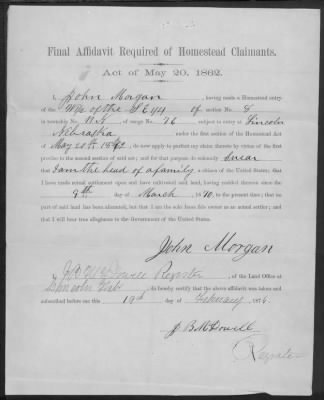 Final Affidavit Required of Homestead Claimants.
Act of May 20, 1862.
I, John Morgan, having made a Homestead entry
of the W½ of the S E ¼ of section No. 8
in township No. 11 N of range No. 76 subject to entry at Lincoln
Nebraska under the first section of the Homestead Act
of May 20th 1862, do now apply to perfect my claim thereto by virtue of the first
proviso to the second section of said act; and for that purpose do solemnly Swear
that I am the head of a family a citizen of the United States; that I
have made actual settlement upon and have cultivated said land, having resided thereon since the
9th day of March 1870, to the present time; that no
part of said land has been alienated, but that I am the sole bona fide owner as an actual settler; and
that I will bear true allegiance to the Government of the United States.
John Morgan
I, J B McDowell Register, of the Land Office at
Lincoln Neb do hereby certify that the above affidavit was taken and
subscribed before me this 19th day of February 1876
J B McDowell
Register